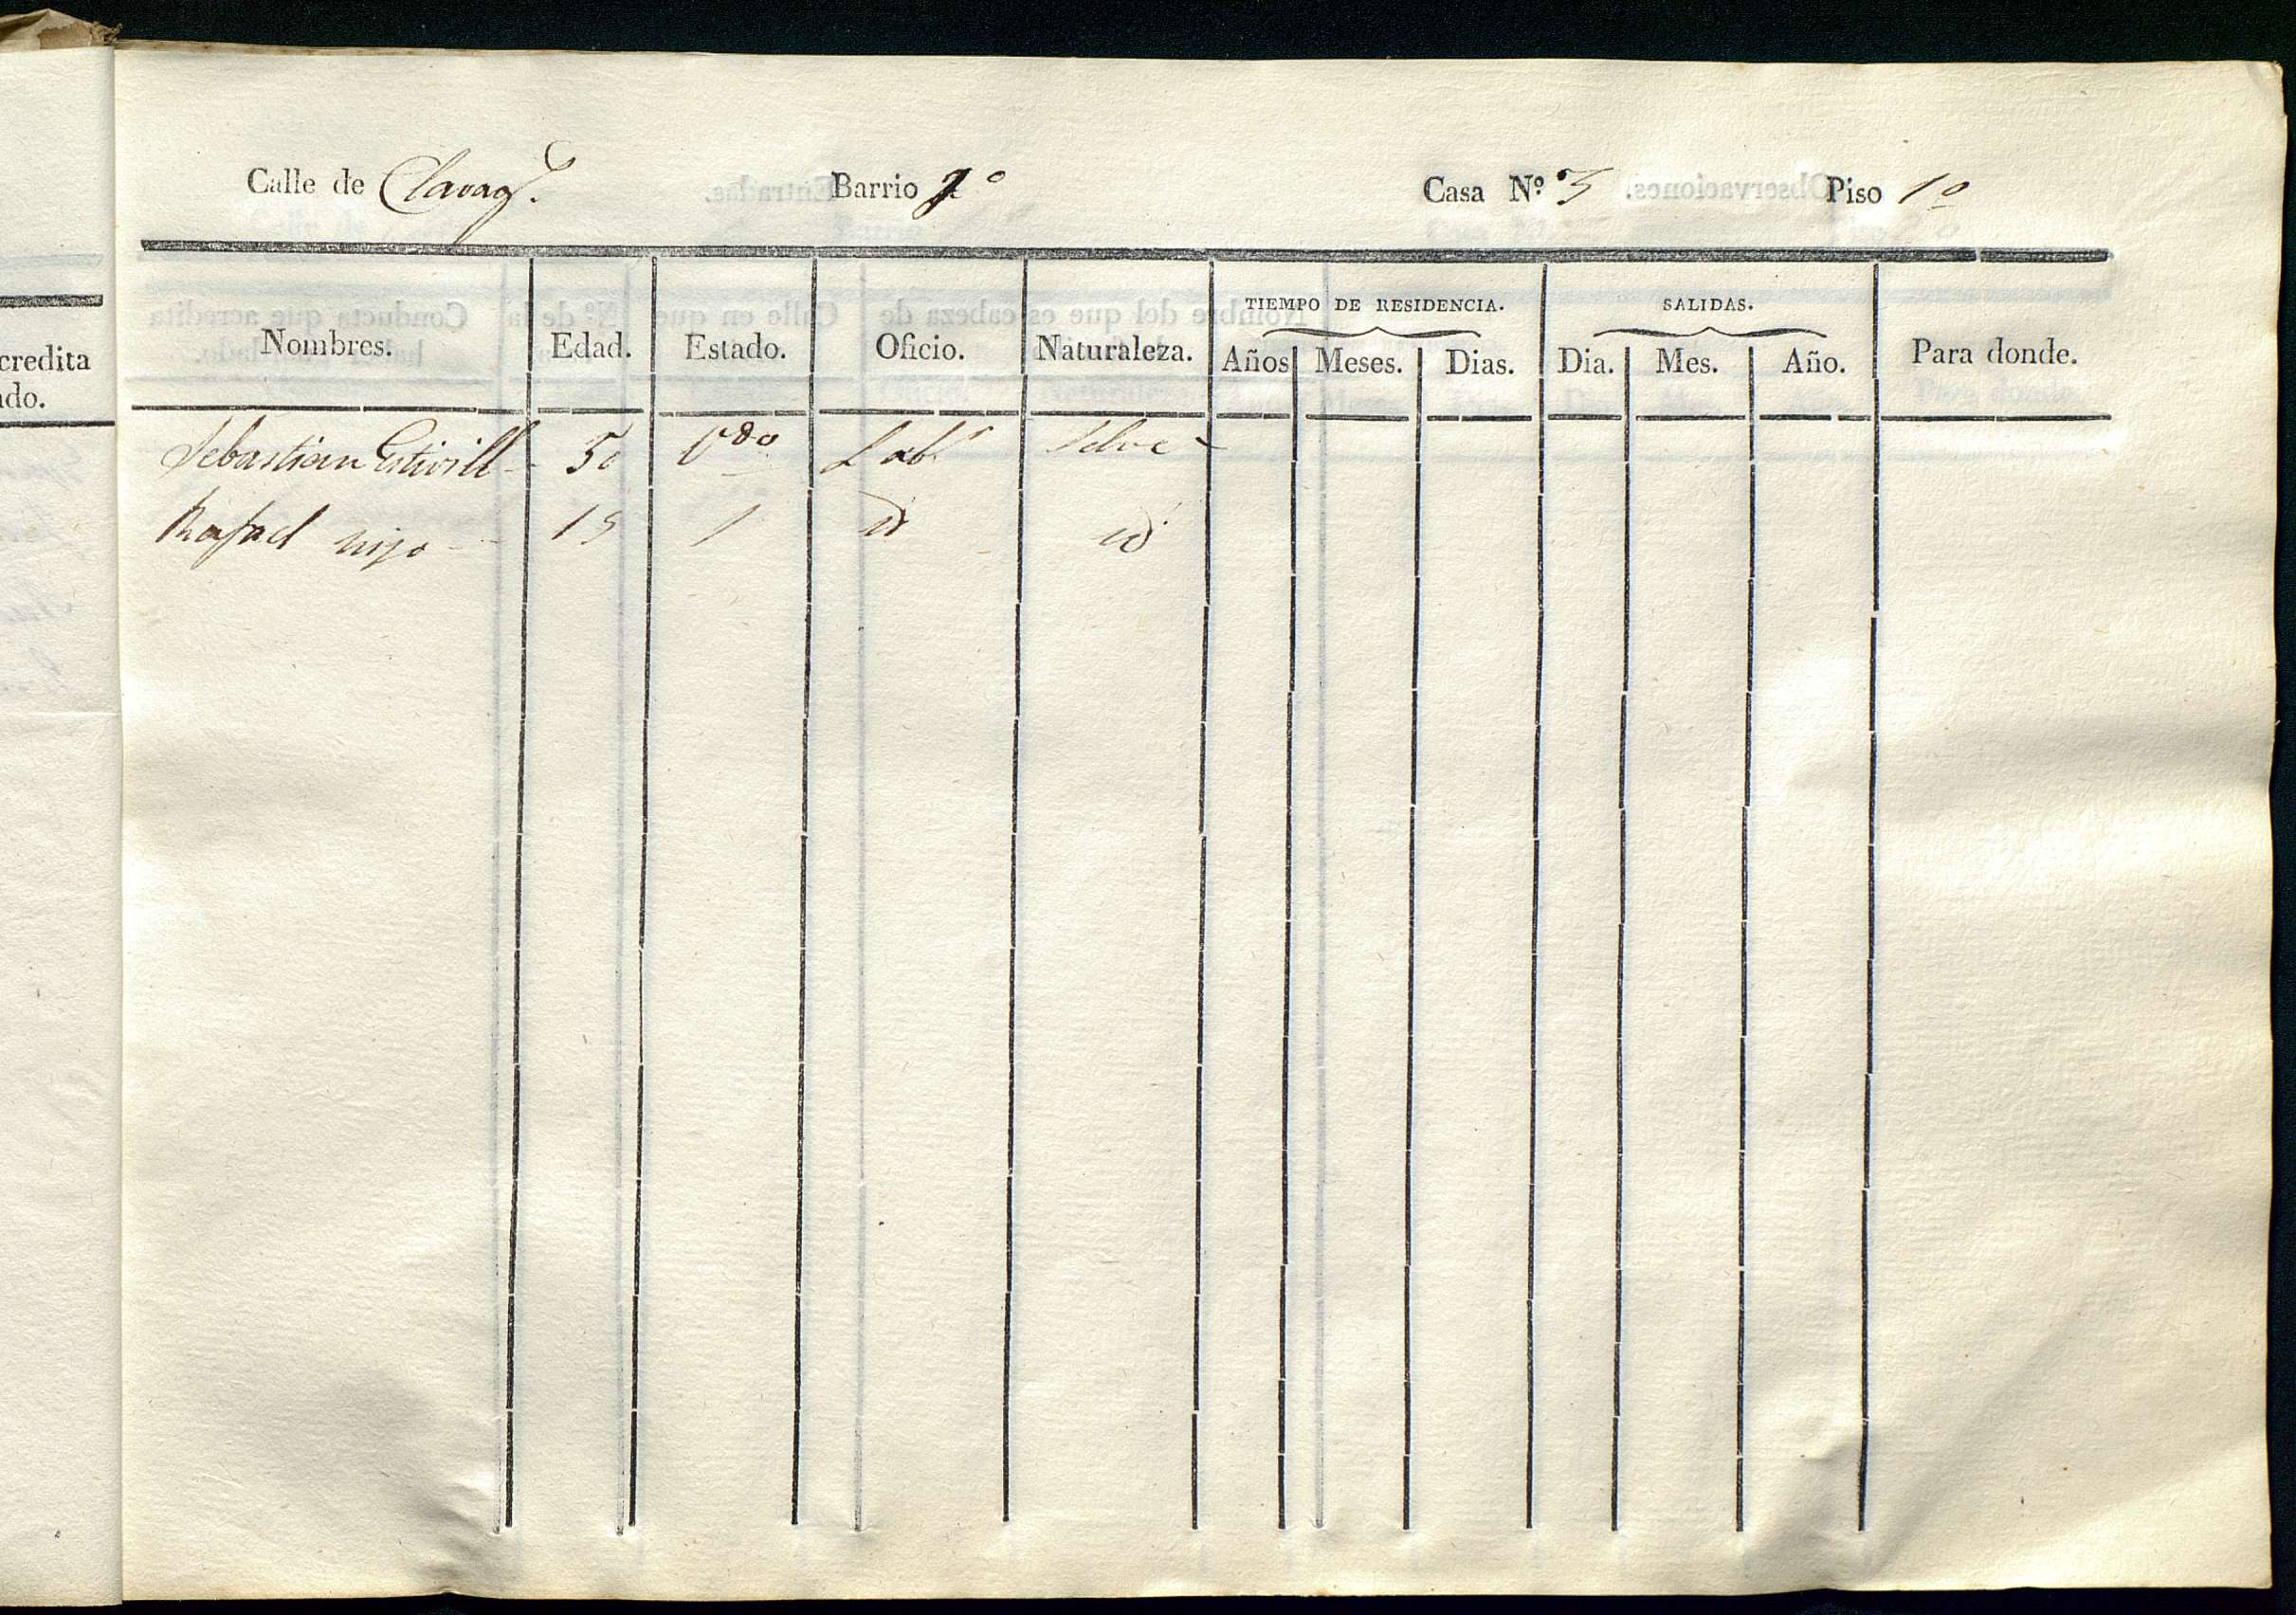 credita
do.
Calle de Clavag.ª Barrio 1º Casa Nº 3 Piso 1º
TIEMPO DE RESIDENCIA. SALIDAS.
Nombres. Edad. Estado. Oficio. Naturaleza. Años Meses. Dias. Dia. Mes. Año. Para donde.
Sebastian Estivill 50 Vdo Labr Selva
Rafael hijo 19 id id